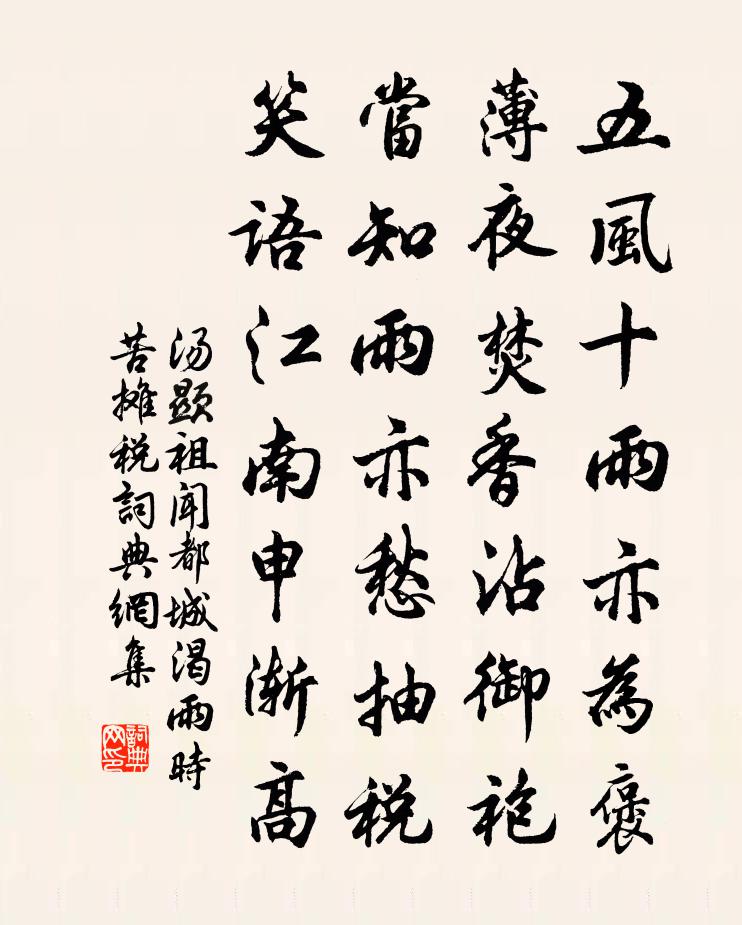 五風十雨亦為褒
薄夜焚香沾御袍
當知雨亦愁抽税
笑語江南申漸高
汤顯祖闻都城渴雨時
苦攤税詞典網集
詞典网印